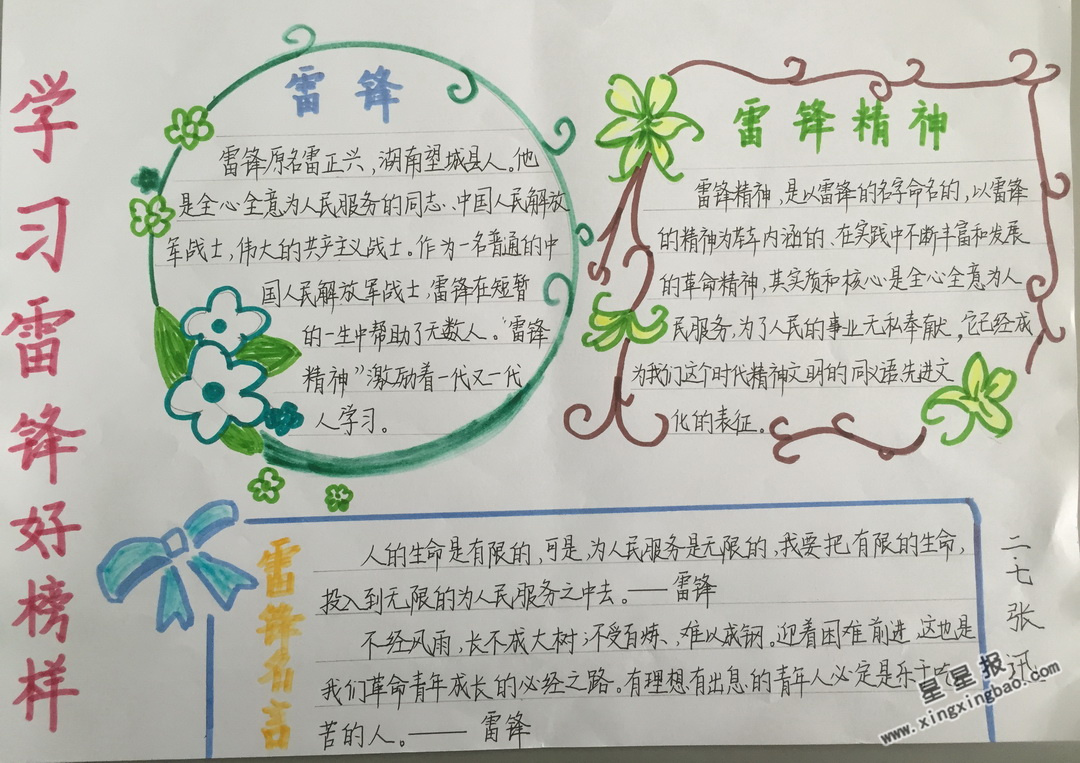 学习雷锋好榜样
雷锋
雷锋原名雷正兴，湖南望城县人。他
是全心全意为人民服务的同志、中国人民解放
军战士，伟大的共产主义战士。作为一名普通的中
国人民解放军战士，雷锋在短暂
的一生中帮助了无数人。“雷锋
精神”激励着一代又一代
人学习。
雷锋精神
雷锋精神，是以雷锋的名字命名的，以雷锋
的精神为内涵的、在实践中不断丰富和发展
的革命精神，其实质和核心是全心全意为人
民服务，为了人民的事业无私奉献，它已经成
为我们这个时代精神文明的同义语先进文
化的表征。
雷锋名言
人的生命是有限的，可是，为人民服务是无限的，我要把有限的生命，
投入到无限的为人民服务之中去。——雷锋
不经风雨，长不成大树；不受百炼、难以成钢。迎着困难前进，这也是
我们革命青年成长的必经之路。有理想有出息的青年人必定是乐于吃
苦的人。——雷锋
二.七张讯
星星报
www.xingxingbao.com